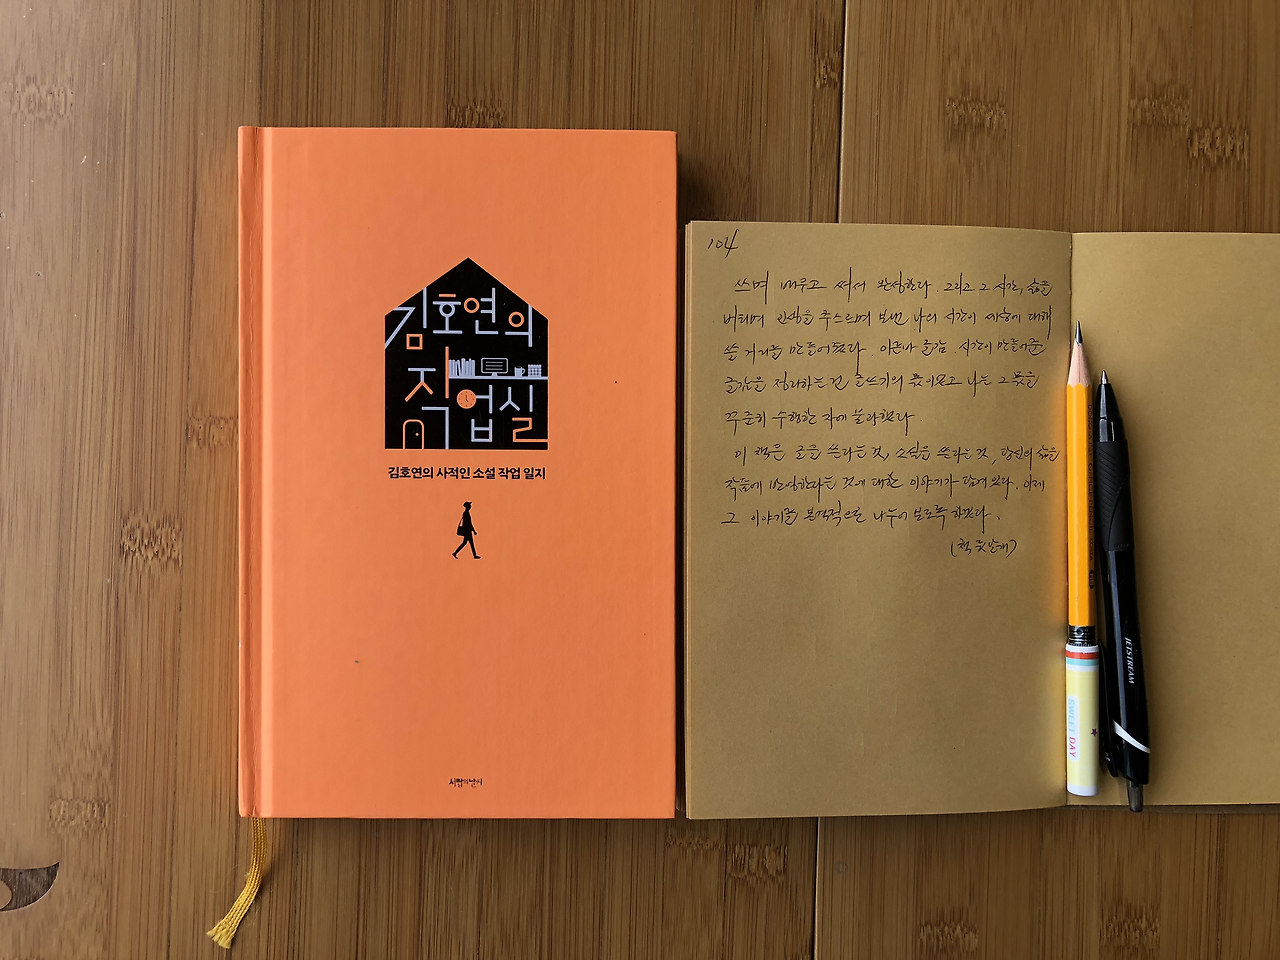 김호연의
작업실
김호연의 사적인 소설 작업 일지
서랍의날씨
104
쓰며 배우고 써서 완성한다. 그리고 그 시간, 삶을
버티며 인생을 추스르며 보낸 나의 시간이 세상에 대해
쓸 거리를 만들어줬다. 이른바 글감. 시간이 만들어준
글감을 정리하는 건 글쓰기의 몫이었고 나는 그 몫을
꾸준히 수행한 자에 불과했다.
이 책은 글을 쓴다는 것, 소설을 쓴다는 것, 당신의 삶을
작품에 반영한다는 것에 대한 이야기가 담겨 있다. 이제
그 이야기를 본격적으로 나누어 보도록 하겠다.
(책 뒷날개)
SWEET DAY
JETSTREAM